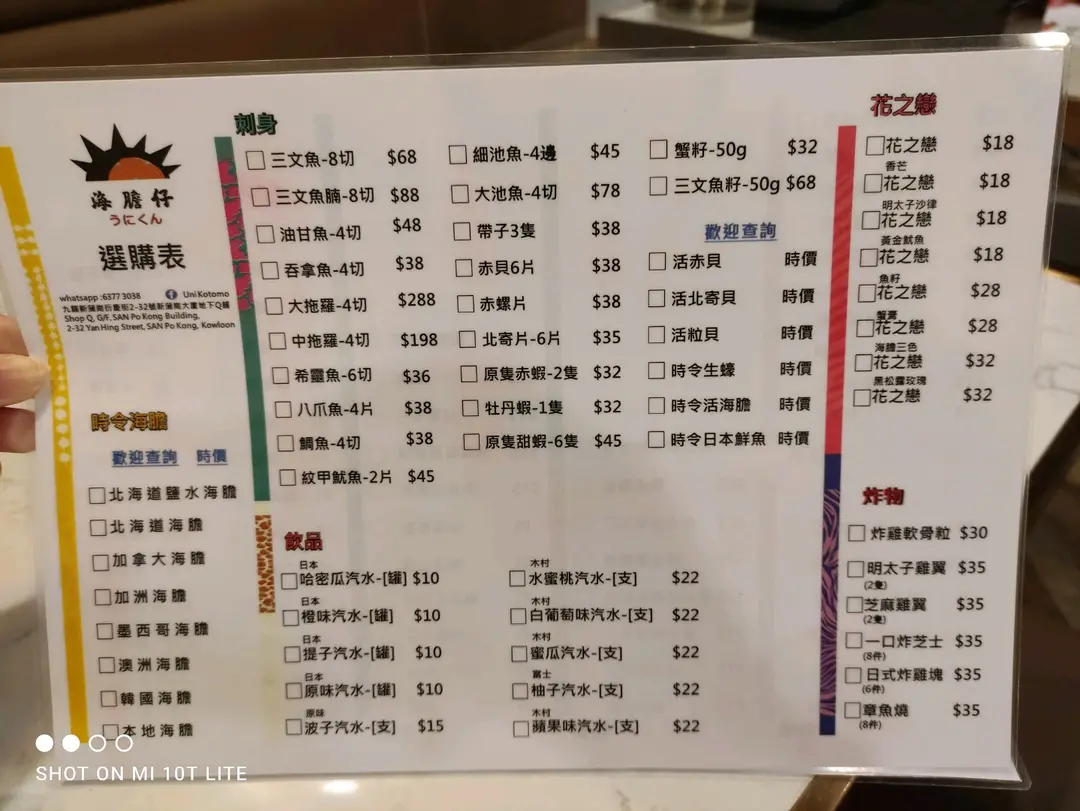 海膽仔
うにくん
選購表
whatsapp :6377 3038 Uni Kotomo
九龍新蒲崗衍慶街2-32號新蒲崗大廈地下Q舖
Shop Q, G/F, SAN Po Kong Building,
2-32 Yan Hing Street, SAN Po Kong, Kowloon
時令海膽
歡迎查詢 時價
北海道鹽水海膽
北海道海膽
加拿大海膽
加洲海膽
墨西哥海膽
澳洲海膽
韓國海膽
本地海膽
刺身
三文魚-8切 $68
三文魚腩-8切 $88
油甘魚-4切 $48
吞拿魚-4切 $38
大拖羅-4切 $288
中拖羅-4切 $198
希靈魚-6切 $36
八爪魚-4片 $38
鯛魚-4切 $38
紋甲魷魚-2片 $45
細池魚-4邊 $45
大池魚-4切 $78
帶子3隻 $38
赤貝6片 $38
赤螺片 $38
北寄片-6片 $35
原隻赤蝦-2隻 $32
牡丹蝦-1隻 $32
原隻甜蝦-6隻 $45
蟹籽-50g $32
三文魚籽-50g $68
歡迎查詢
活赤貝 時價
活北寄貝 時價
活粒貝 時價
時令生蠔 時價
時令活海膽 時價
時令日本鮮魚 時價
飲品
日本
哈密瓜汽水-[罐] $10
日本
橙味汽水-[罐] $10
日本
提子汽水-[罐] $10
日本
原味汽水-[罐] $10
原味
波子汽水-[支] $15
木村
水蜜桃汽水-[支] $22
木村
白葡萄味汽水-[支] $22
木村
蜜瓜汽水-[支] $22
富士
柚子汽水-[支] $22
木村
蘋果味汽水-[支] $22
花之戀
花之戀 $18
香芒
花之戀 $18
明太子沙律
花之戀 $18
黃金魷魚
花之戀 $18
魚籽
花之戀 $28
蟹膏
花之戀 $28
海膽三色
花之戀 $32
黑松露玫瑰
花之戀 $32
炸物
炸雞軟骨粒 $30
明太子雞翼 $35
(2隻)
芝麻雞翼 $35
(2隻)
一口炸芝士 $35
(8件)
日式炸雞塊 $35
(6件)
章魚燒 $35
(8件)
SHOT ON MI 10T LITE